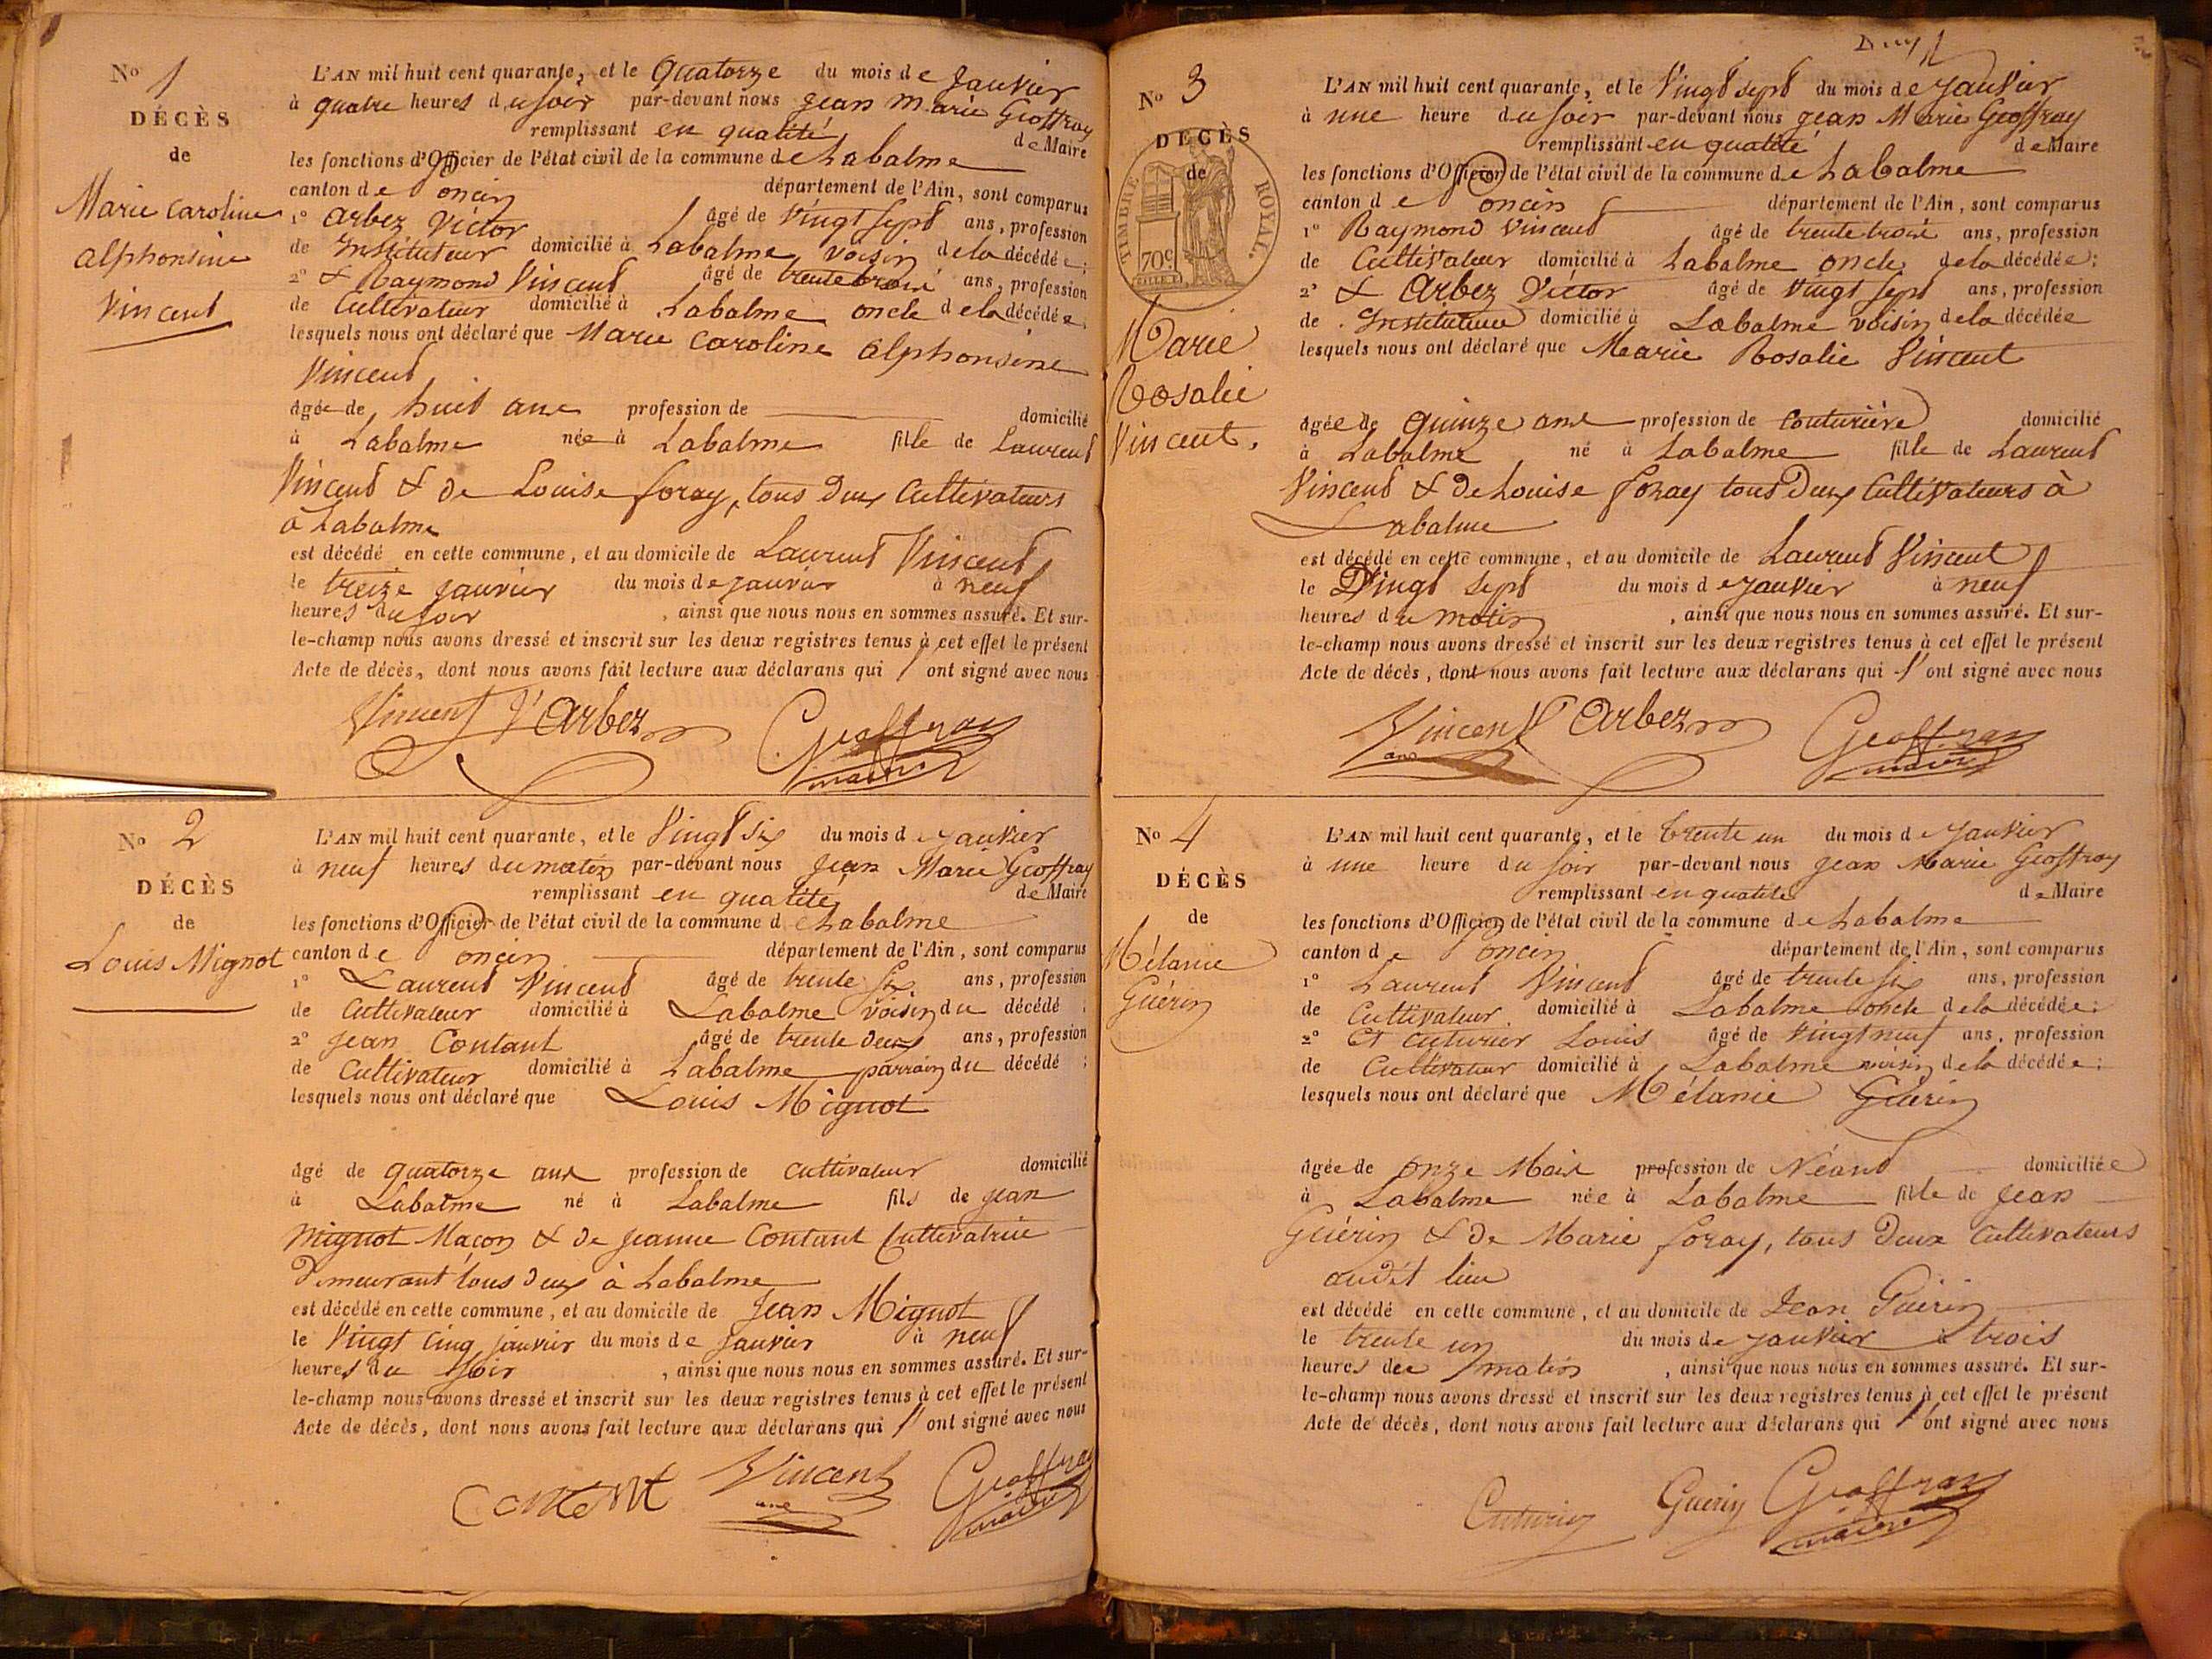 No 1
DÉCÈS
de
Marie Caroline
alphonsine
Vincent
L'AN mil huit cent quarante, et le Quatorze du mois de Janvier
à quatre heures du soir par-devant nous Jean Marie Geoffray
remplissant en qualité de Maire
les fonctions d'Officier de l'état civil de la commune de Labalme
canton de Poncin département de l'Ain, sont comparus
1° Arbez Victor âgé de Vingt sept ans, profession
de Instituteur domicilié à Labalme voisin de la décédée;
2° & Raymond Vincent âgé de trente trois ans, profession
de Cultivateur domicilié à Labalme oncle de la décédée;
lesquels nous ont déclaré que Marie Caroline alphonsine
Vincent
âgée de huit ans profession de domicilié
à Labalme née à Labalme fille de Laurent
Vincent & de Louise foray, tous deux Cultivateurs
à Labalme
est décédé en cette commune, et au domicile de Laurent Vincent
le treize janvier du mois de janvier à neuf
heures du soir, ainsi que nous nous en sommes assuré. Et sur-
le-champ nous avons dressé et inscrit sur les deux registres tenus à cet effet le présent
Acte de décès, dont nous avons fait lecture aux déclarans qui l'ont signé avec nous
Vincent V Arbez Geoffray
maire
No 2
DÉCÈS
de
Louis Mignot
L'AN mil huit cent quarante, et le Vingt six du mois de janvier
à neuf heures du matin par-devant nous Jean Marie Geoffray
remplissant en qualité de Maire
les fonctions d'Officier de l'état civil de la commune de Labalme
canton de Poncin département de l'Ain, sont comparus
1° Laurent Vincent âgé de trente six ans, profession
de Cultivateur domicilié à Labalme voisin du décédé;
2° Jean Contant âgé de trente deux ans, profession
de Cultivateur domicilié à Labalme parrain du décédé;
lesquels nous ont déclaré que Louis Mignot
âgé de quatorze ans profession de cultivateur domicilié
à Labalme né à Labalme fils de jean
Mignot Maçon & de jeanne Contant Cultivatrice
Demeurant tous deux à Labalme
est décédé en cette commune, et au domicile de Jean Mignot
le Vingt cinq janvier du mois de janvier à neuf
heures du soir, ainsi que nous nous en sommes assuré. Et sur-
le-champ nous avons dressé et inscrit sur les deux registres tenus à cet effet le présent
Acte de décès, dont nous avons fait lecture aux déclarans qui l'ont signé avec nous
Vincent Geoffray
maire
No 3
DÉCÈS
de
TIMBRE ROYAL.
70c
Marie
Rosalie
Vincent.
L'AN mil huit cent quarante, et le Vingt sept du mois de janvier
à une heure du soir par-devant nous jean Marie Geoffray
remplissant en qualité de Maire
les fonctions d'Officier de l'état civil de la commune de Labalme
canton de Poncin département de l'Ain, sont comparus
1° Raymond Vincent âgé de trente trois ans, profession
de Cultivateur domicilié à Labalme oncle de la décédée;
2° & Arbez Victor âgé de vingt sept ans, profession
de Instituteur domicilié à Labalme voisin de la décédée
lesquels nous ont déclaré que Marie Rosalie Vincent
âgée de Quinze ans profession de couturière domicilié
à Labalme né à Labalme fille de Laurent
Vincent & de Louise foray tous deux Cultivateurs à
Labalme
est décédé en cette commune, et au domicile de Laurent Vincent
le Vingt sept du mois de janvier à neuf
heures du matin, ainsi que nous nous en sommes assuré. Et sur-
le-champ nous avons dressé et inscrit sur les deux registres tenus à cet effet le présent
Acte de décès, dont nous avons fait lecture aux déclarans qui l'ont signé avec nous
Vincent V Arbez Geoffray
maire
No 4
DÉCÈS
de
Mélanie
Guérin
L'AN mil huit cent quarante, et le trente un du mois de janvier
à une heure du soir par-devant nous jean Marie Geoffray
remplissant en qualité de Maire
les fonctions d'Officier de l'état civil de la commune de Labalme
canton de Poncin département de l'Ain, sont comparus
1° Laurent Vincent âgé de trente six ans, profession
de Cultivateur domicilié à Labalme oncle de la décédée;
2° Et cuturier Louis âgé de Vingt neuf ans, profession
de Cultivateur domicilié à Labalme voisin de la décédée;
lesquels nous ont déclaré que Mélanie Guérin
âgée de onze Mois profession de Néant domiciliée
à Labalme née à Labalme fille de jean
Guérin & de Marie foray, tous deux Cultivateurs
audit lieu
est décédé en cette commune, et au domicile de Jean Guérin
le trente un du mois de janvier à trois
heures du matin, ainsi que nous nous en sommes assuré. Et sur-
le-champ nous avons dressé et inscrit sur les deux registres tenus à cet effet le présent
Acte de décès, dont nous avons fait lecture aux déclarans qui l'ont signé avec nous
Cuturier Guerin Geoffray
maire